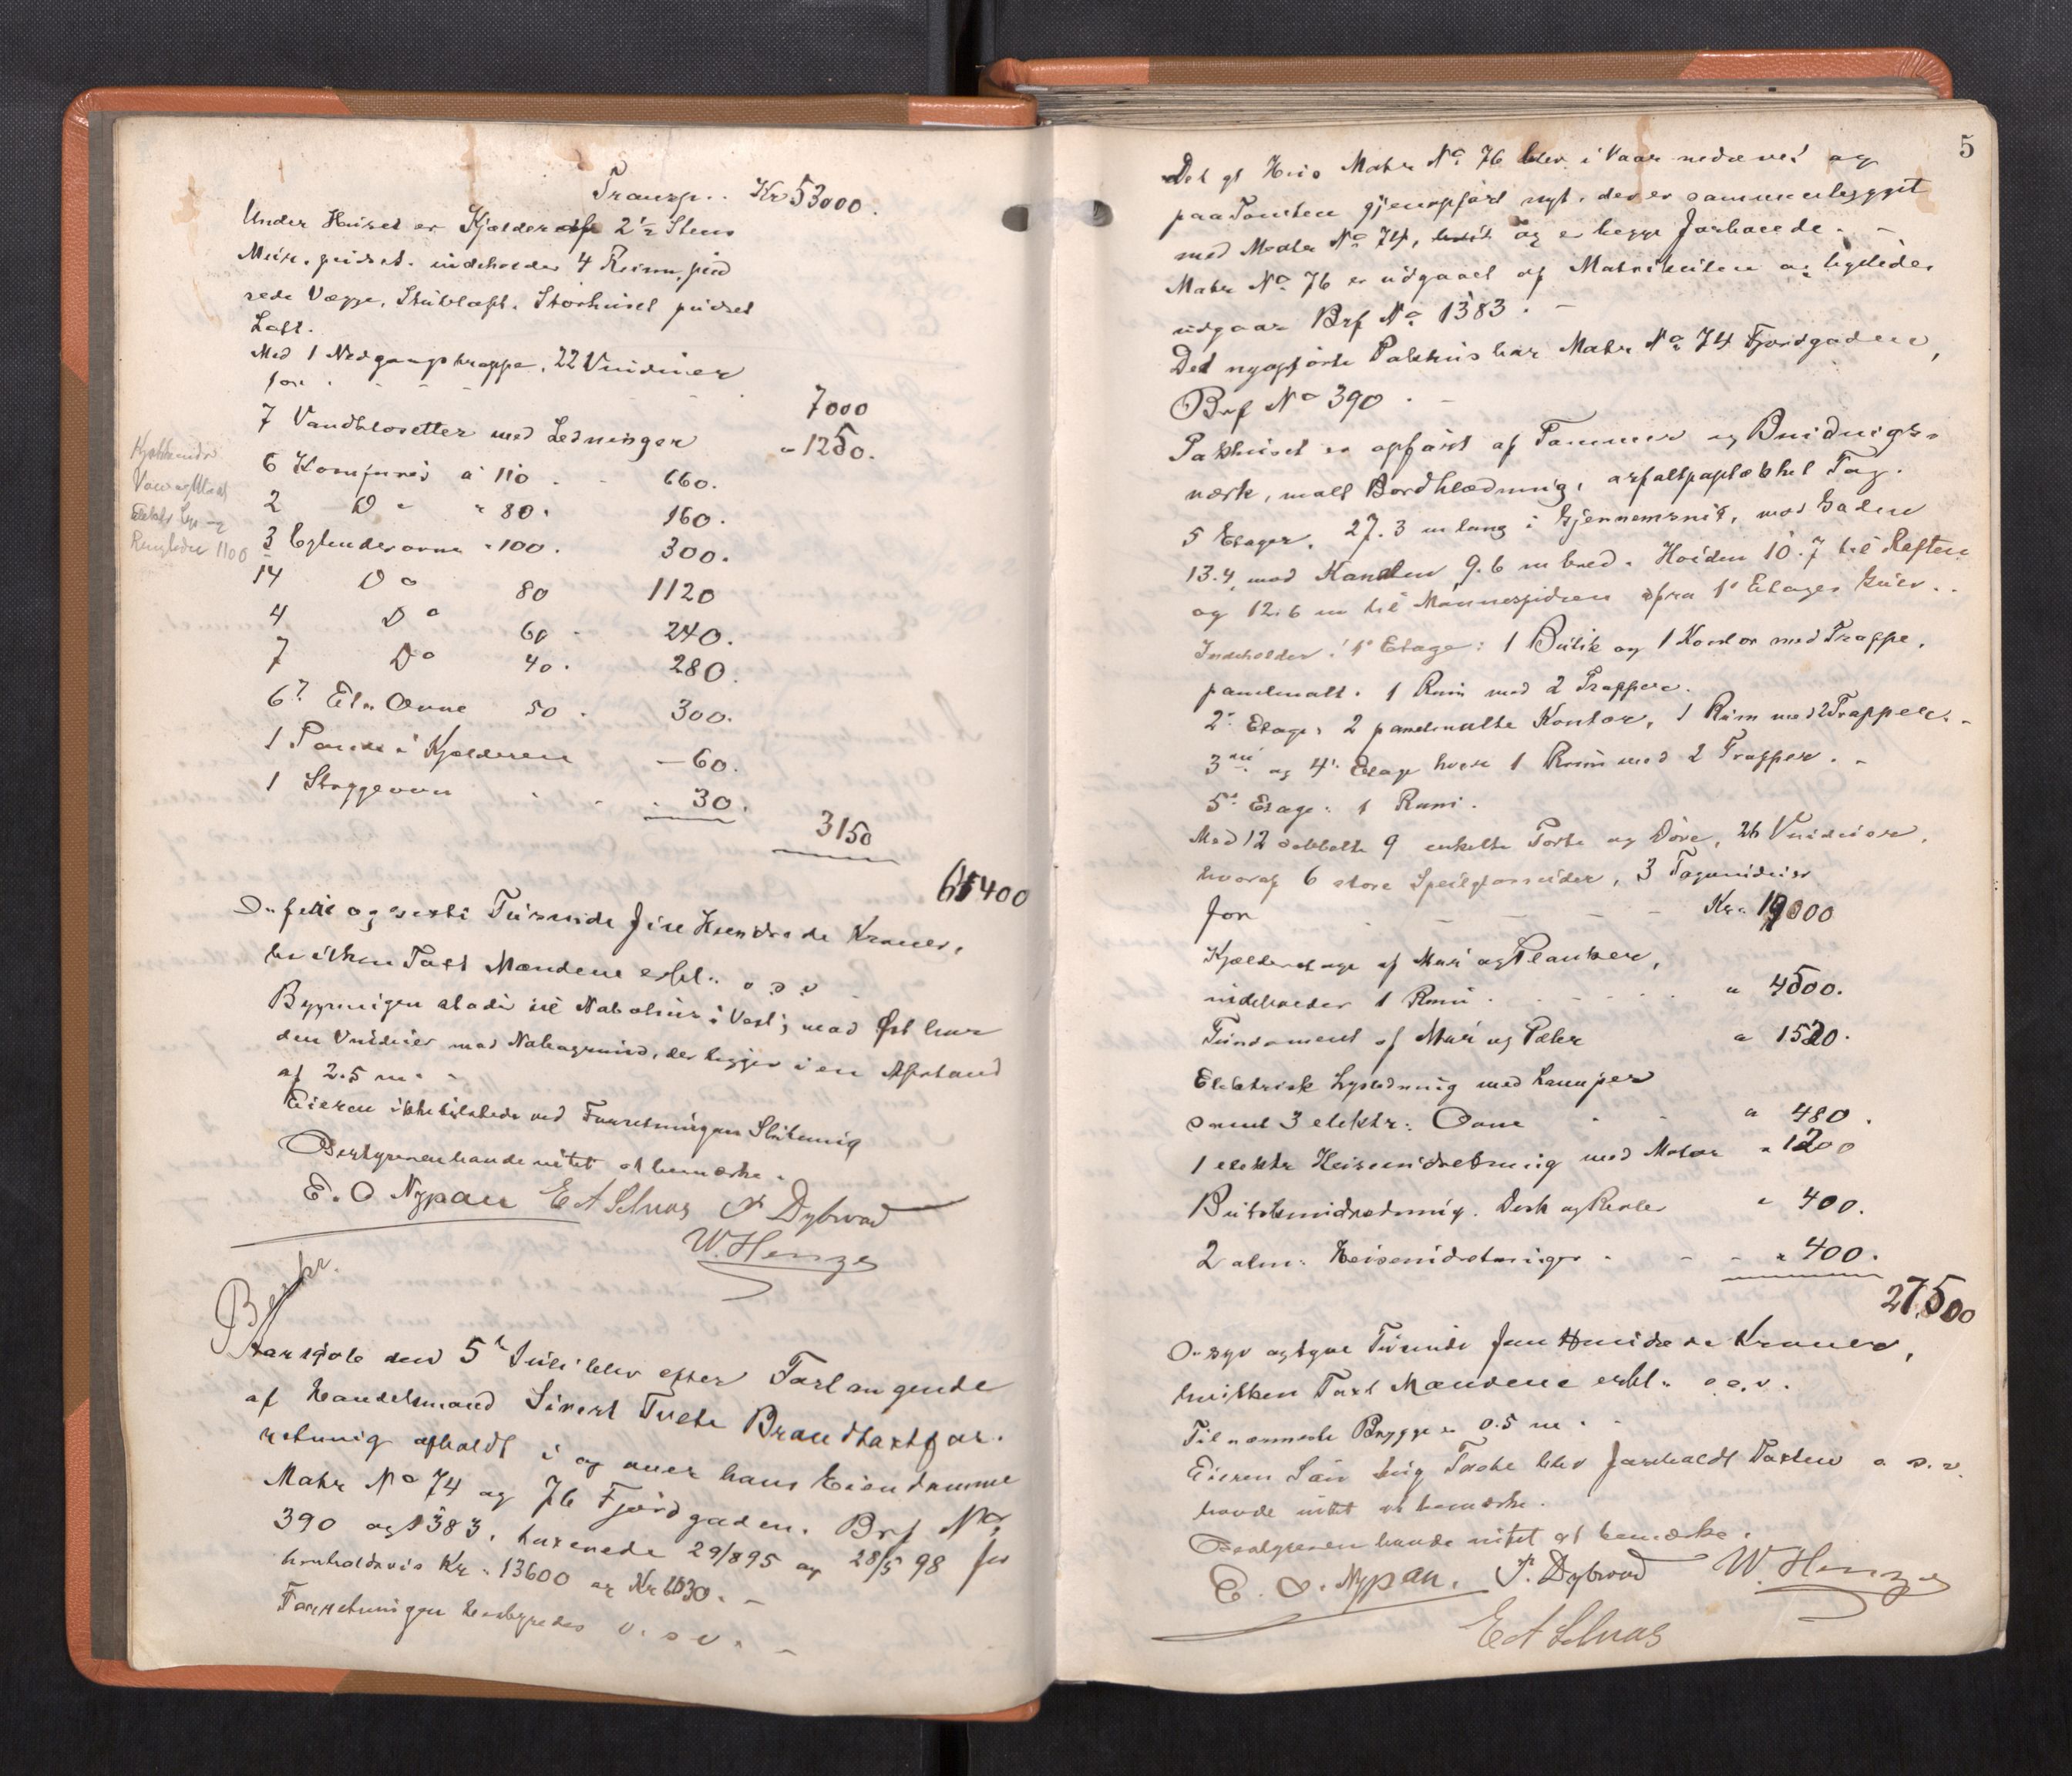 Transp.. Kr 53000.
Under Huset er Kjælder af 2½ Stens
Mur, pudset. indeholder 4 Rum, pud
sede Vægge, Stubloft. Storhuset pudset
Loft.
Med 1 Nedgangstrappe, 22 Vinduer
for . - - - . 7000
7 Vandklosetter med Ledninger " 1250.
6 Komfurer á 110 . - 660.
2 Do " 80. 160.
3 Cylinderovne " 100. 300.
14 Do 80 1120
4 Do 60 - 240.
7 Do 40. 280.
6 Et. Ovne 50 . 300.
1 Pande i Kjælderen - 60.
1 Støggeovn . . . 30.
3150
64400
Vand og
Elektr Lys og
Ringledn 1100
Hvilken Taxt Mændene erkl. o s v
Bygningen støder til Nabohus i Vest; mod Øst har
den Vinduer mod Nabogrund, der ligger i en Afstand
af 2.5 m. -
Eieren ikke tilstede ved Forretningens Slutning
Bestyreren havde intet at bemærke.
E. O Nypan E A Selnæs P Dybvad
W. Henze
Beskr.
Aar 1906 den 5te Juli blev efter Forlangende
af Handelsmand Sivert Tvete Brandtaxtfor-
retning afholdt i og over hans Eiendomme
Matr No 74 og 76 Fjordgaden. Brf No
390 og 1383, taxerede 29/8 95 og 28/5 98 for
henholdsvis Kr. 13600 og Kr 1030. -
Forretningen bestyredes o. s v. -
5
Det gl Hus Matr No 76 blev i Vaar nedrevet og
paa Tomten gjenopført nyt, der er sammenbygget
med Matr No 74, og er begge forbundne. -
Matr No 76 er udgaaet af Matrikulen og ligeledes
udgaar Brf No 1383. -
Det nyopførte Pakhus har Matr No 74 Fjordgaden,
Brf No 390 . -
Pakhuset er opført af Tømmer og Bindings-
værk, malt Bordklædning, asfaltpaptækket Tag.
5 Etager. 27.3 m lang i Gjennemsnit, mod Gaden
13.4, mod Kanalen 9.6 m bred. Høiden 10.7 til Røsten
og 12.6 m til Mønnespidsen fra 1e Etages Gulv..
Indeholder i 1e Etage: 1 Butik og 1 Kontor med Trappe,
panelmalt. 1 Rum med 2 Trapper.
2. Etage: 2 panelmalte Kontor, 1 Rum med 2 Trapper. -
3die og 4. Etage hver 1 Rum med 2 Trapper. -
5. Etage: 1 Rum.
Med 12 dobbelte 9 enkelte Porte og Døre, 26 Vinduer,
hvoraf 6 store Speilglasruder, 3 Tagvinduer
for - - - - Kr. 19000
Kjælderetage af Mur og Planker,
indeholder 1 Rum . - - - . " 4500.
Fundament af Mur og Pæler " 1520.
Elektrisk Lysledning med Lamper
samt 3 elektr. Ovne . - " 480.
1 elektr Heiseindretning med Motor " 1200
Butikindredning. Disk og Reoler " 400.
2 alm. Heiseindretninger - - - " 400.
27500
Er syv og tyve Tusinde fem Hundrede Kroner,
hvilken Taxt Mændene erkl. o. s. v.
Til nærmeste Brygge er 0.5 m.
Eieren Tvete blev foreholdt Taxten o. s. v.
havde intet at bemærke.
Bestyreren havde intet at bemærke.
E. O. Nypan. P. Dybvad W. Henze
E A Selnæs